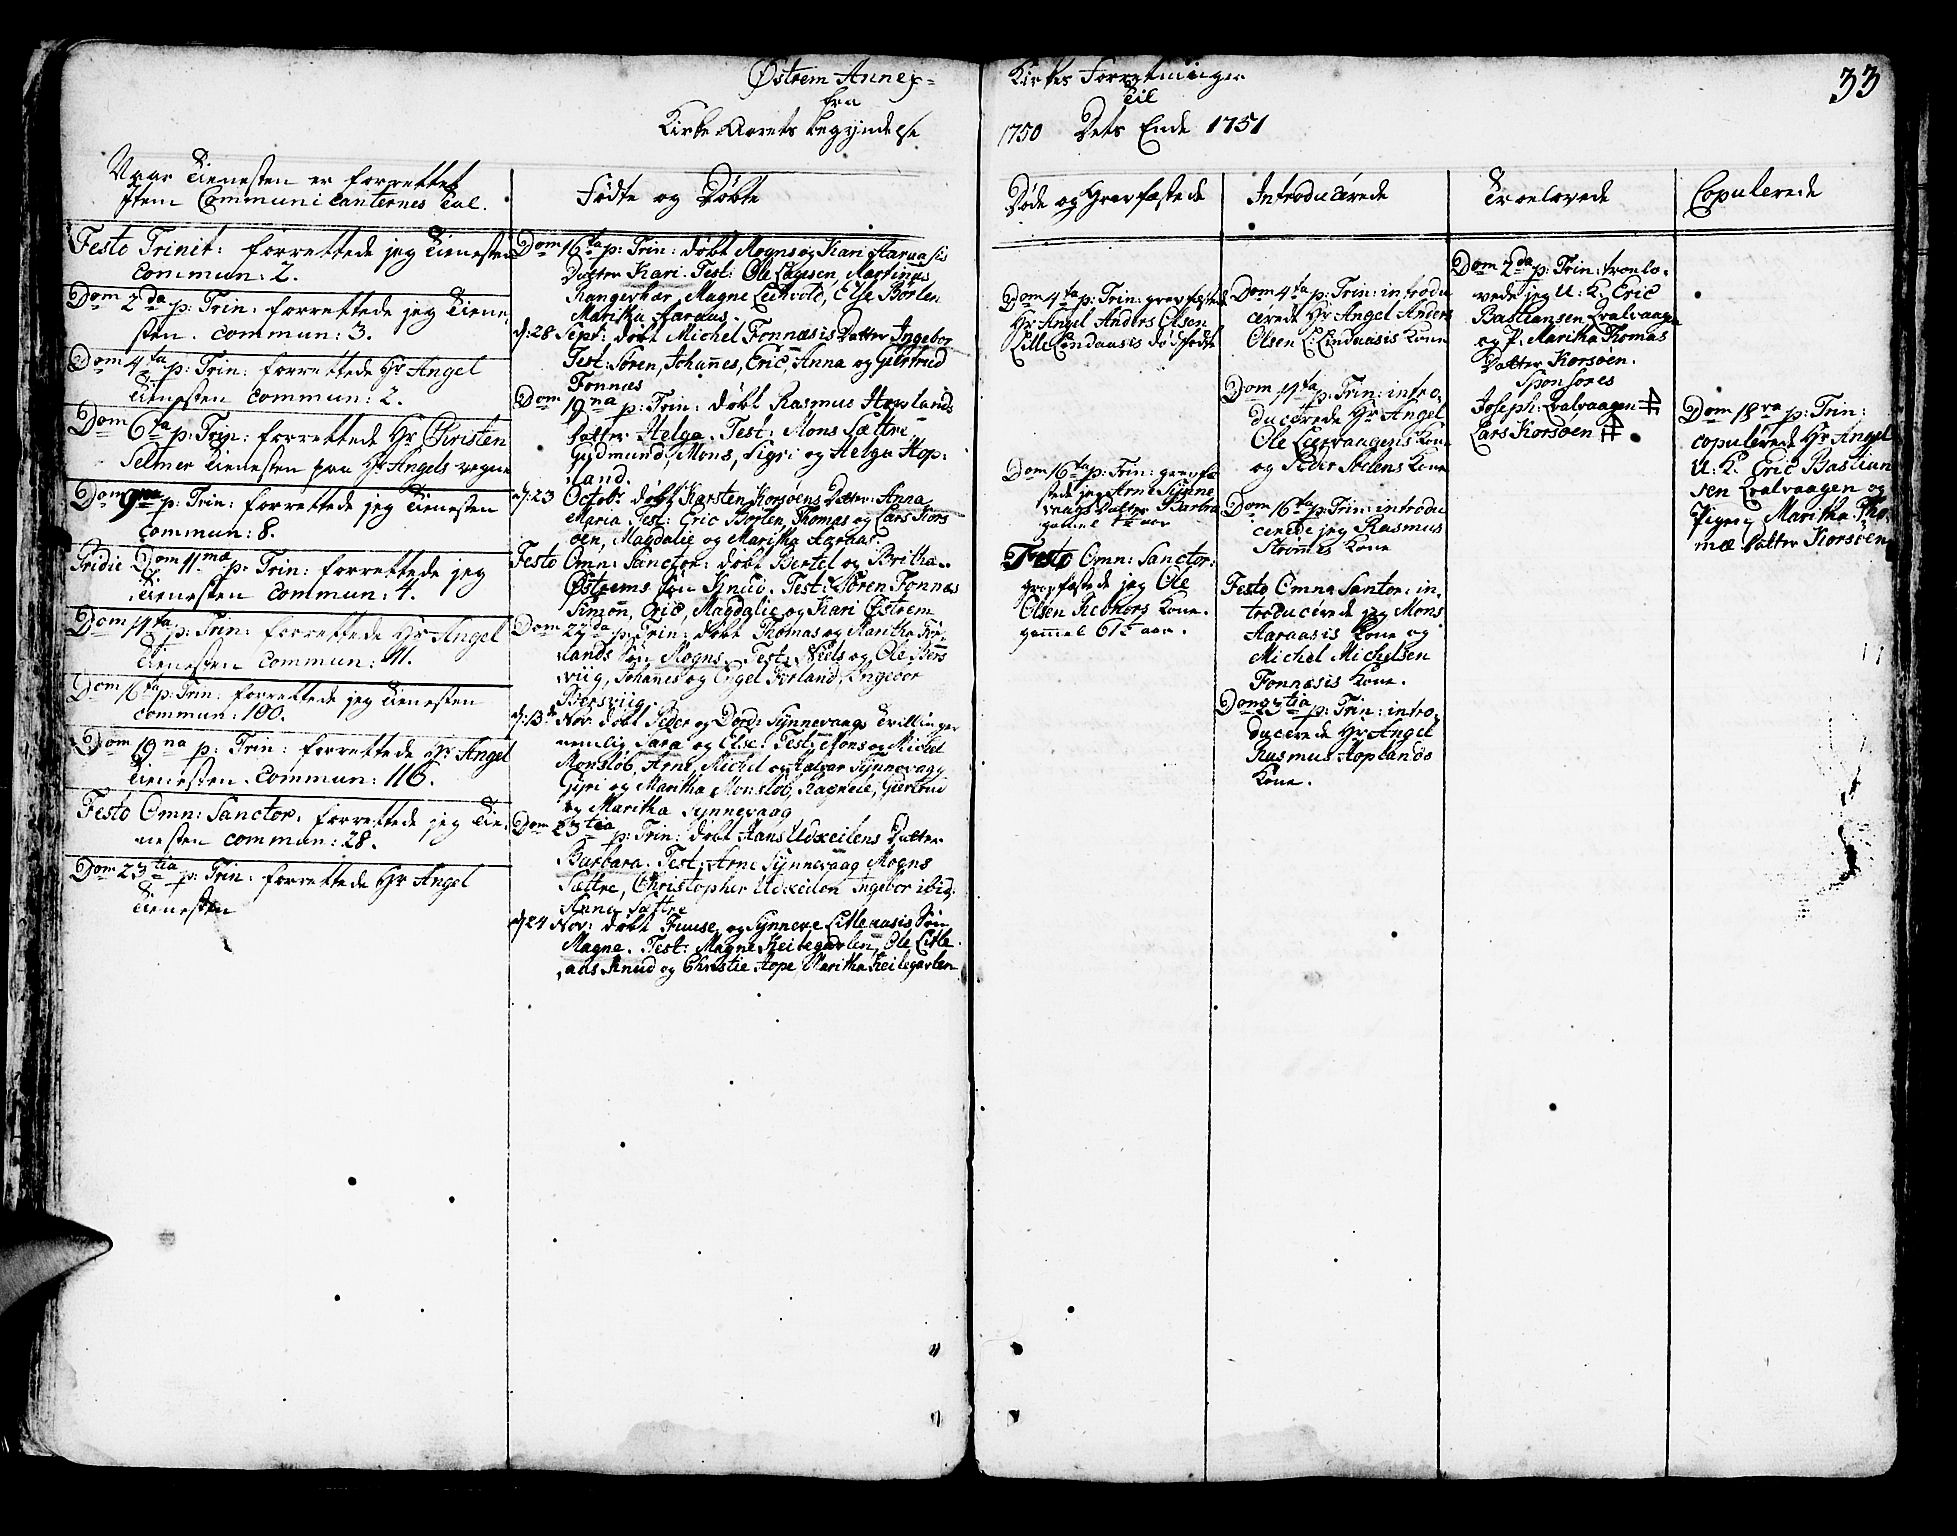 Østrem Annex=
fra
Kirke Aarets begyndelse
Kirkes Forretninger
Til
1750 Dets Ende 1751
33
Naar Tienesten er forrettet
Item Communicanternes Tal.
Festo Trinit: forrettede jeg Tienesten
commun: 2.
Dom 2da p: Trin: forrettede jeg Tiene
sten. commun: 3.
Dom 4ta p: Trin: forrettede Hr Angel
Tienesten commun: 2.
Dom 6ta p: Trin: forrettede Hr Christen
Seltner Tienesten paa Hr Angels vegne
Dom 9na p: Trin: forrettede jeg Tienesten
commun: 8.
Pridie Dom 11ma p: Trin: forrettede jeg
Tienesten commun: 4.
Dom 14ta p: Trin: forrettede Hr Angel
Tienesten commun: 41.
Dom 16ta p: Trin: forrettede jeg Tienesten
commun: 100.
Dom 19na p: Trin: forrettede Hr Angel
Tienesten commun: 116.
Festo Omn: Sanctor: forrettede jeg Tie-
nesten commun: 28.
Dom 23tia p: Trin: forrettede Hr Angel
Tienesten
Fødte og Døbte
Dom 16ta p: Trin: døbt Mogns og Kari Aaraasis
Datter Kari. Test: Ole Martinus
Magne Else Borlen
Maritha Aaraas.
d: 28 Sept: døbt Michel Fonnæsis Datter Ingebor
Test: Søren, Johannes, Eric, Anna og Giertrud
Fonnæs
Dom 19na p: Trin: døbt Rasmus Hoplands
Datter Helga. Test: Mons Sættre,
Gudmund, Mons, Sigri og Helga Hop-
land.
d: 23 Octobr døbt Karsten Korsøens Datter Anna
Maria Test: Eric Borlen, Thomas og Lars Kors
øen, Magdalie og Maritha Aaraas.
Festo Omn: Sanctor: døbt Bertel og Britha
Østrems Søn Knud. Test: Søren Fonnæs
Simon, Eric, Magdalie og Kari Østrem
Dom 22da p: Trin: døbt Thomas og Maritha Før-
lands Søn Mogns. Test: Niels og Ole Børs
viig, Johanes og Engel Førland, Ingebor
Børsviig.
d: 13de Nov: døbt Peder og Dord: Synnevaags Tvillinger
nemlig Sara og Else. Test: Mons og Michel
Monsløb, Arne, Michel og Halvor Synnevaag
Gjøri og Maritha Monsløb, Ragnele, Giertrud
og Maritha Synnevaag
Dom 23tia p: Trin: døbt Hans Udkeilens Datter
Barbara. Test: Arne Synnevaag Mogns
Sættre, Christopher Udkeilen Ingebor ibid:
Anna Sættre
d: 24 Nov: døbt Fuuse og Synneve Litleaasis Søn
Magne. Test: Magne Keilegavlen, Ole Litle
aas Knud og Christie Hope Maritha Keilegavlen
Døde og Gravfæstede
Dom 4ta p: Trin: gravfæstede
Hr Angel Anders Olsen
LilleLindaasis dødfødte
Dom 16ta p: Trin: gravfæ
stede jeg Arne Synne
vaags Datter Barbra
gammel 1/2 aar
Festo Omn: Sanctor:
gravfæstede jeg Ole
Olsen Kone.
gammel 61 1/2 aar.
Introducerede
Dom 4ta p: Trin: introdu
cerede Hr Angel Anders
Olsen L: Lindaasis Kone
Dom 14ta p: Trin: intro-
ducerede Hr Angel
Ole Kone
og Peder Kone
Dom 16ta p: Trin: introdu
cerede jeg Rasmus
Strømes Kone
Festo Omn: Sanctor: in-
troducerede jeg Mons
Aaraasis Kone og
Michel Michelsen
Fonnæsis Kone.
Dom 23tia p: Trin: intro-
ducerede Hr Angel
Rasmus Hoplands
Kone.
Troelovede
Dom 2da p: Trin: troelo-
vede jeg U: K: Eric
Bastiansen Qvalvaagen
og P: Maritha Thomas
Datter Korsøen.
Sponsores
Joseph: Qvalvaagen
Lars Korsøen
Copulerede
Dom 18va p: Trin:
copulerede Hr Angel
U: K: Eric Bastian
sen Qvalvaagen og
Pigen Maritha Tho
mæ Datter Korsøen